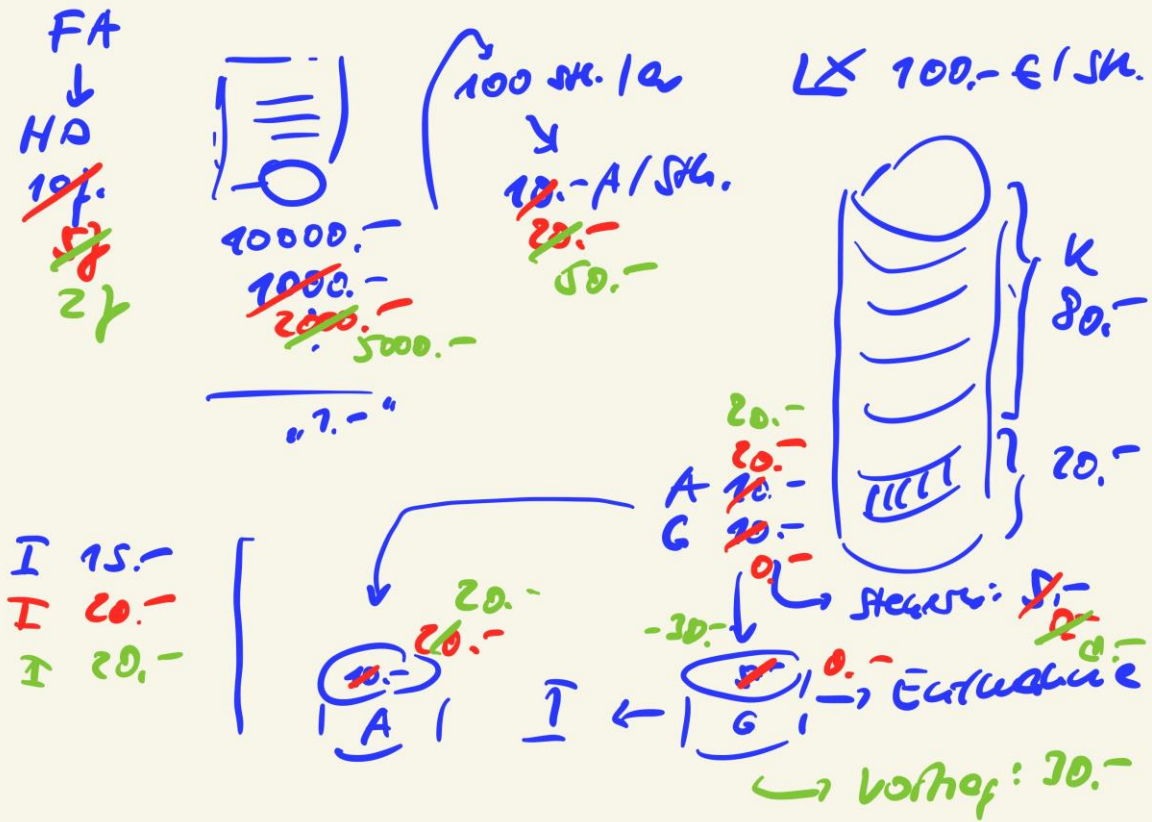 FA
HD
10j.
5j
2j
10000.-
1000.-
2000.-
5000.-
"1.-"
100 Stk. /a
10.- A / Stk.
20.-
50.-
100.- € / Stk.
K
80.-
20.-
20.-
20.-
A 10.-
G 10.-
0.-
Steuern: 5.-
0.-
0.-
I 15.-
I 20.-
I 20.-
20.-
20.-
10.-
A
I
-30.-
5.-
0.-
G
Entnahme
Vortrag: 30.-